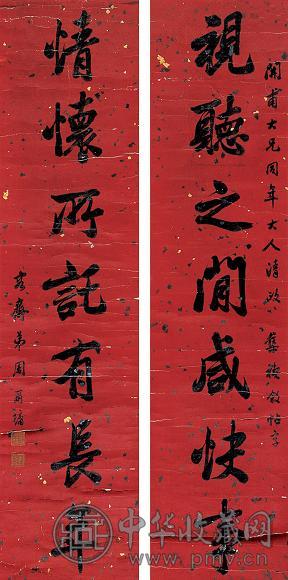 開甫大兄同年大人清政 集禊敘帖字
視聽之間咸快事
情懷所託有長年
容齋弟周爾墉
中华收藏网